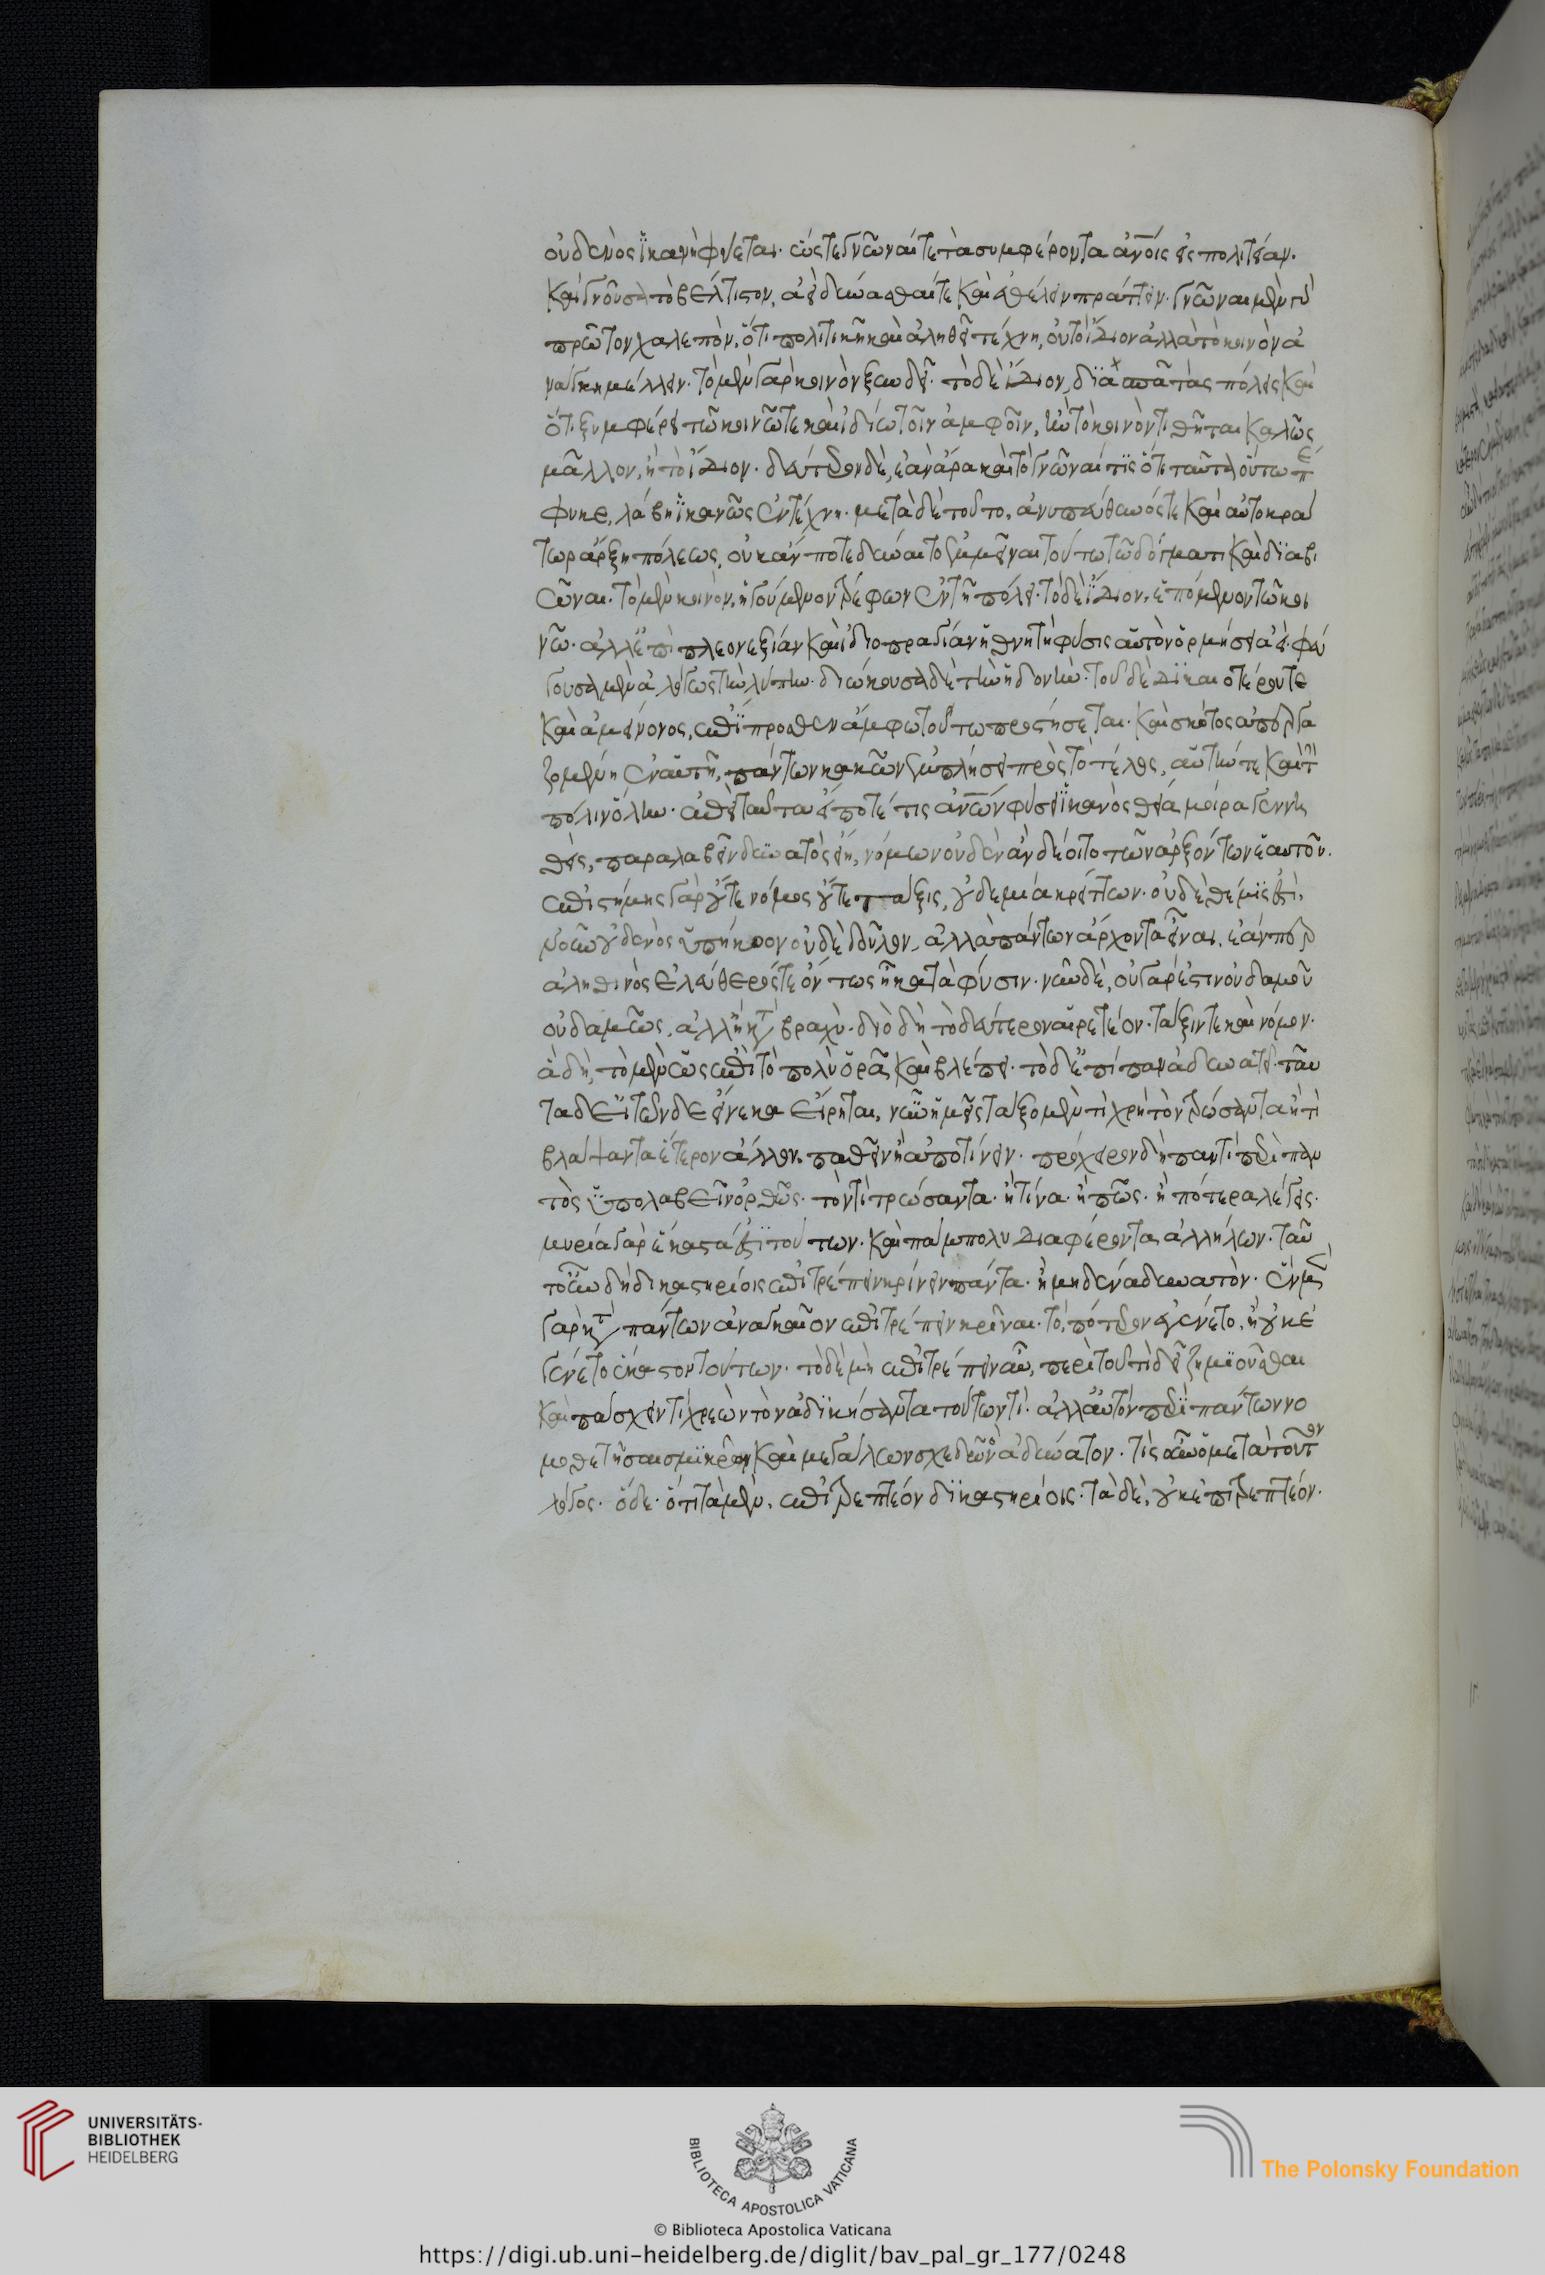 οὐδενὸς ἱκανὴ φύεται· ὥστε γνῶναί τε τὰ συμφέροντα ἀνοις εἰς πολιτείαν·
καὶ γνοῦσα τὸ βέλτιστον, ἀεὶ δύνασθαί τε καὶ ἐθέλειν πράττειν· γνῶναι μὲν γὰρ
πρῶτον χαλεπὸν, ὅτι πολιτικῆ καὶ ἀληθεῖ τέχνη, οὐ τὸ ἴδιον ἀλλὰ τὸ κοινὸν ἀ
νάγκη μέλλειν· τὸ μὲν γὰρ κοινὸν ξυνδεῖ· τὸ δὲ ἴδιον, διασπᾶ τὰς πόλεις καὶ
ὅτι ξυμφέρει τῶ κοινῶ τε καὶ ἰδίω τοῖν ἀμφοῖν, ἢν τὸ κοινὸν τιθῆται καλῶς
μᾶλλον, ἢ τὸ ἴδιον· δεύτερον δὲ, ἐὰν ἄρα καὶ τὸ γνῶναί τις ὅτι ταῦτα οὕτω πέ
φυκε, λάβη ἱκανῶς ἐν τέχνη· μετὰ δὲ τοῦτο, ἀνυπεύθυνός τε καὶ αὐτοκρά
τωρ ἄρξη πόλεως, οὐκ ἄν ποτε δύναιτο ἐμμεῖναι τούτω τῶ δόγματι καὶ διαβι
ῶναι· τὸ μὲν κοινὸν, ἡγούμενον τρέφων ἐν τῆ πόλει· τὸ δὲ ἴδιον, ἑπόμενον τῶ κοι
νῶ· ἀλλ' ἐπὶ πλεονεξίαν καὶ ἰδιοπραγίαν ἡ θνητὴ φύσις αὐτὸν ὁρμήσει ἀεί· φεύ
γουσα μὲν ἀλόγως τὴν λύπην· διώκουσα δὲ τὴν ἡδονήν· τοῦ δὲ δικαιοτέρου τε
καὶ ἀμείνονος, ἐπίπροσθεν ἄμφω τούτω προστήσεται· καὶ σκότος ἀπεργα
ζομένη ἐν αὑτῆ, πάντων κακῶν ἐμπλήσει πρὸς τὸ τέλος, αὑτήν τε καὶ τὴν
πόλιν ὅλην· ἐπεὶ ταῦτα εἴ ποτέ τις ἀνων φύσει ἱκανὸς θεία μοίρα γεννη
θεὶς, παραλαβεῖν δυνατὸς εἴη, νόμων οὐδὲν ἂν δέοιτο τῶν ἀρξόντων ἑαυτοῦ·
ἐπιστήμης γὰρ οὔτε νόμος οὔτε τάξις, οὐδεμία κρείττων· οὐδὲ θέμις ἐστὶ,
νοῦν οὐδενὸς ὑπήκοον οὐδὲ δοῦλον, ἀλλὰ πάντων ἄρχοντα εἶναι, ἐάν περ
ἀληθινὸς ἐλεύθερός τε ὄντως ἦ κατὰ φύσιν· νῦν δὲ, οὐ γάρ ἐστιν οὐδαμοῦ
οὐδαμῶς, ἀλλ' ἢ κατὰ βραχύ· διὸ δὴ τὸ δεύτερον αἱρετέον· τάξιν τε καὶ νόμον·
ἃ δὴ, τὸ μὲν ὡς ἐπὶ τὸ πολὺ ὁρᾶ, καὶ βλέπει· τὸ δ' ἐπὶ πᾶν ἀδυνατεῖ· ταῦ
τα δὲ τῶνδε εἵνεκα εἴρηται, νῦν ἡμεῖς τάξομεν τί χρὴ τὸν τρώσαντα ἤ τι
βλάψαντα ἕτερον ἄλλον παθεῖν ἢ ἀποτίνειν· πρόχειρον δὴ παντὶ περὶ παν
τὸς ὑπολαβεῖν ὀρθῶς· τὸν τί τρώσαντα· ἢ τίνα· ἢ πῶς· ἢ πότερα λέγεις·
μυρία γὰρ ἕκαστά ἐστι τούτων· καὶ πάμπολυ διαφέροντα ἀλλήλων· ταῦ
τ' οὖν δὴ δικαστηρίοις ἐπιτρέπειν κρίνειν πάντα· ἢ μηδὲν ἀδύνατον· ἓν μὲν
γὰρ κατὰ πάντων ἀναγκαῖον ἐπιτρέπειν κρῖναι· τὸ, πότερον ἐγένετο, ἢ οὐκ ἐ
γένετο ἕκαστον τούτων· τὸ δὲ μὴ ἐπιτρέπειν αὖ, περὶ τοῦ τί δεῖ ζημιοῦσθαι
καὶ πάσχειν τί χρεὼν τὸν ἀδικήσαντα τούτων τί· ἀλλ' αὐτὸν περὶ πάντων νο
μοθετῆσαι σμικρῶν καὶ μεγάλων σχεδὸν ἀδύνατον· τίς οὖν ὁ μετὰ τοῦτον
λόγος· ὅδε· ὅτι τὰ μὲν, ἐπιτρεπτέον δικαστηρίοις· τὰ δὲ, οὐκ ἐπιτρεπτέον·
UNIVERSITÄTS-
BIBLIOTHEK
HEIDELBERG
BIBLIOTECA APOSTOLICA VATICANA
The Polonsky Foundation
© Biblioteca Apostolica Vaticana
https://digi.ub.uni-heidelberg.de/diglit/bav_pal_gr_177/0248